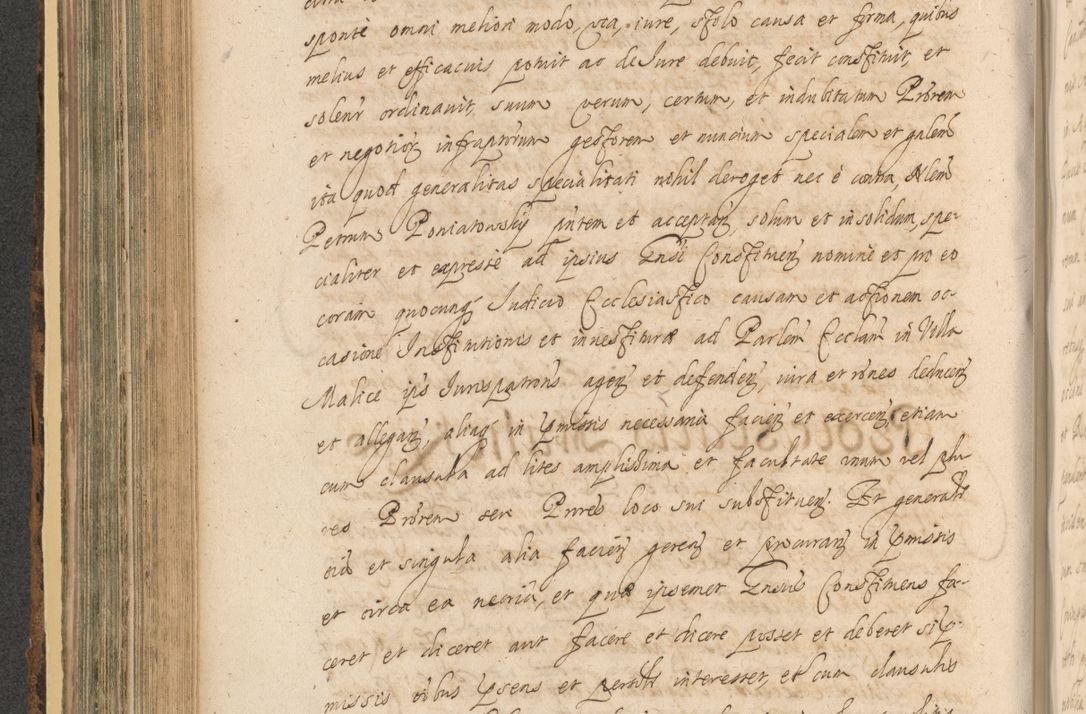 sponte omni meliori modo, via, iure, stylo causa et forma, quibus
melius et efficacius potuit ac de Iure debuit, fecit constituit, et
solenr ordinavit, suum verum, certum, et indubitatum Prorem
et negotior infraptorum gestorem et nuncium specialem et gnlem
ita quod generalitas specialitati nihil deroget nec è contra, Nlem
Petrum Poniatowskij pntem et acceptan, solum et insolidum, spe-
cialiter et expresse ad ipsius Gnsi Constituen nomine et pro eo
coram quocunq Iudicio Ecclesiastico causam et actionem oc-
casione Institutionis et investituræ ad Parlem Ecclam in Villa
Malice ips Iurispatrons agen et defenden, iura et rones deducen
et allegan, aliaq in pmissis necessaria facien et exercen, etiam
cum clausula ad lites amplissima et facultate unum vel plu-
res Prorem seu Prores loco sui substituen. Et generalr
oia et singula alia facien geren et procuran in pmissis
et circa ea necria, et quæ ipsemet Gnsus Constituens fa-
ceret et diceret aut facere et dicere posset et deberet si p-
missis oibus psens et psonalr interesset, et cum clausulis